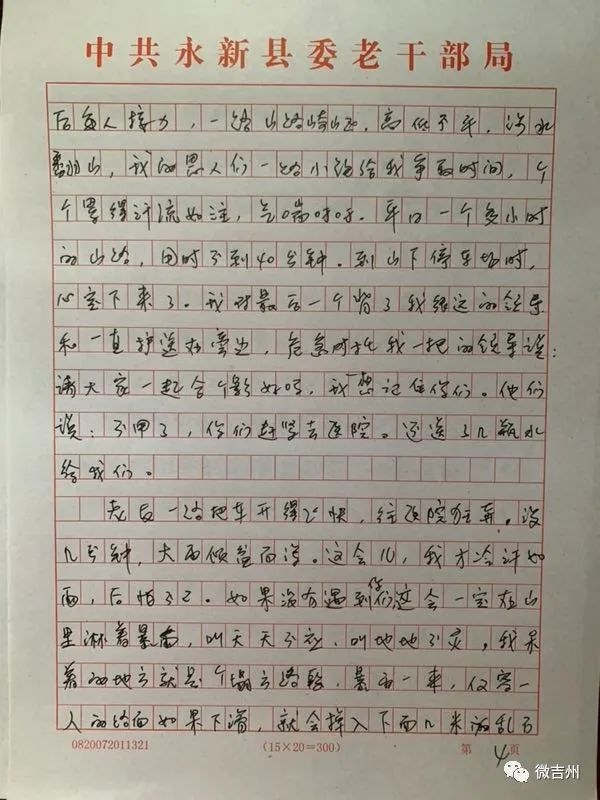 中共永新县委老干部局
后多人接力，一路山路崎岖，高低不平，涉水
翻山，我的恩人们一路小跑给我争取时间，个
个累得汗流如注，气喘吁吁。平日一个多小时
的山路，用时不到40分钟。到山下停车场时，
心定下来了。我对最后一个背了我很远的领导
和一直护送在旁边，危急时扶我一把的领导说：
请大家一起合个影好吗，我想记住你们。他们
说：不用了，你们赶紧去医院。还送了几瓶水
给我们。
老友一路把车开得飞快，往医院狂奔。没
几分钟，大雨倾盆而泻。这会儿，我才冷汗如
雨，后怕不已。如果没有遇到你们这会一定在山
里淋着暴雨，叫天天不应，叫地地不灵，我呆
着的地方就是个塌方路段，暴雨一来，仅容一
人的路面如果下滑，就会掉入下面几米的乱石
0820072011321
(15×20=300)
第4页
微吉州